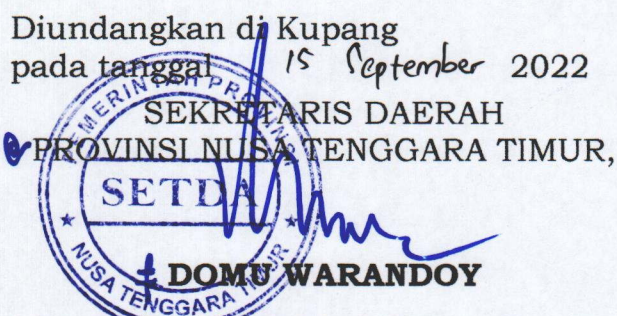 Diundangkan di Kupang
pada tanggal 15 September 2022
SEKRETARIS DAERAH
PROVINSI NUSA TENGGARA TIMUR,
PEMERINTAH PROVINSI
SETDA
NUSA TENGGARA TIMUR
DOMU WARANDOY